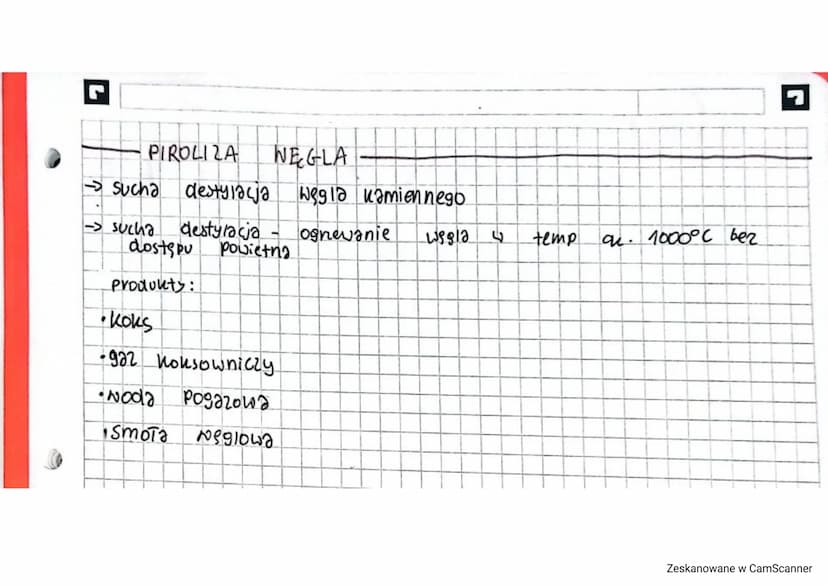 PIROLIZA WĘGLA
→ sucha destylacja węgla kamiennego
→ sucha destylacja - ogrzewanie węgla w temp ok. 1000°C bez
dostępu powietrza
produkty:
• koks
• gaz koksowniczy
• woda pogazowa
• smoła węglowa
Zeskanowane w CamScanner